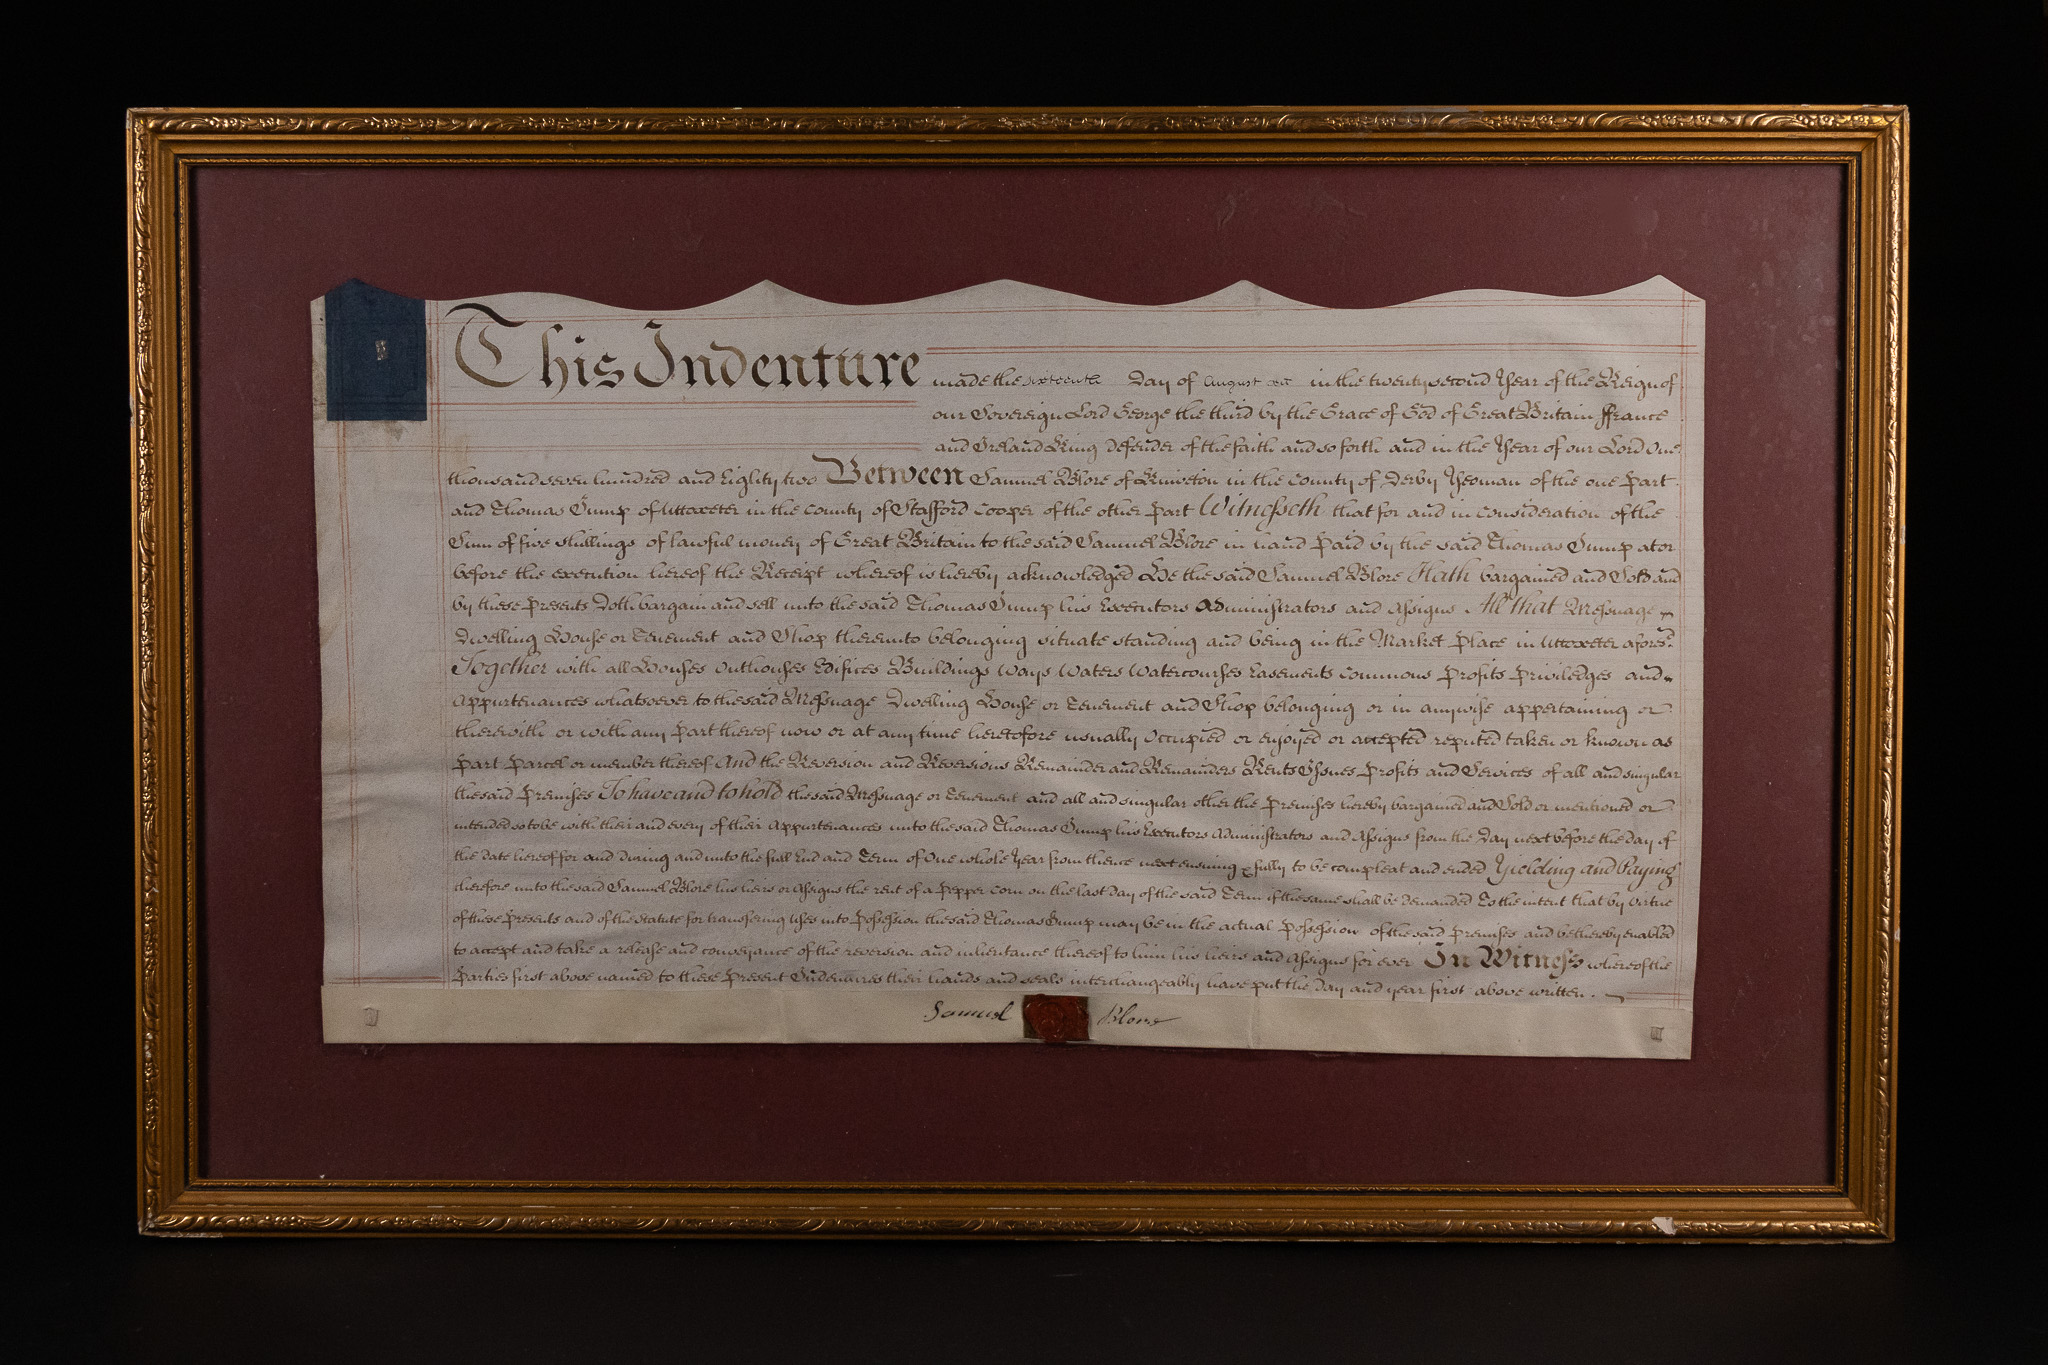 This Indenture made the sixteenth Day of August in the twenty second Year of the Reign of
our Sovereign Lord George the third by the Grace of God of Great Britain ffrance
and Ireland King Defender of the faith and so forth and in the Year of our Lord One
thousand seven hundred and Eighty two Between Samuel Blore of Kniveton in the County of Derby Yeoman of the one Part
and Thomas Gump of Uttoxeter in the County of Stafford Cooper of the other Part Witnesseth that for and in consideration of the
Sum of five shillings of lawful money of Great Britain to the said Samuel Blore in hand Paid by the said Thomas Gump at or
before the execution hereof the Receipt whereof is hereby acknowledged He the said Samuel Blore Hath bargained and Sold and
by these Presents Doth bargain and sell unto the said Thomas Gump his Executors Administrators and Assigns All that Messuage
Dwelling House or Tenement and Shop thereunto belonging situate standing and being in the Market Place in Uttoxeter afores.d
Together with all Houses Outhouses Edifices Buildings Ways Waters Watercourses Easements Commons Profits Priviledges and
Appurtenances whatsoever to the said Messuage Dwelling House or Tenement and Shop belonging or in anywise appertaining or
therewith or with any Part thereof now or at any time heretofore usually Occupied or enjoyed or accepted reputed taken or known as
Part Parcel or member thereof And the Reversion and Reversions Remainder and Remainders Rents Issues Profits and Services of all and singular
the said Premises To have and to hold the said Messuage or Tenement and all and singular other the Premises hereby bargained and Sold or mentioned or
intended so to be with their and every of their Appurtenances unto the said Thomas Gump his Executors Administrators and Assigns from the Day next before the day of
the date hereof for and During and unto the full End and Term of One whole Year from thence next ensuing & fully to be compleat and ended Yielding and Paying
therefore unto the said Samuel Blore his heirs or Assigns the rent of a Pepper Corn on the last Day of the said Term if the same shall be Demanded To the intent that by virtue
of these Presents and of the Statute for transfering Uses into Possession the said Thomas Gump may be in the actual Possession of the said Premises and be thereby enabled
to accept and take a release and conveyance of the reversion and inheritance thereof to him his heirs and Assigns for ever In Witness whereof the
Parties first above named to these Present Indentures their hands and seals interchangeably have put the Day and year first above written.
Samuel Blore